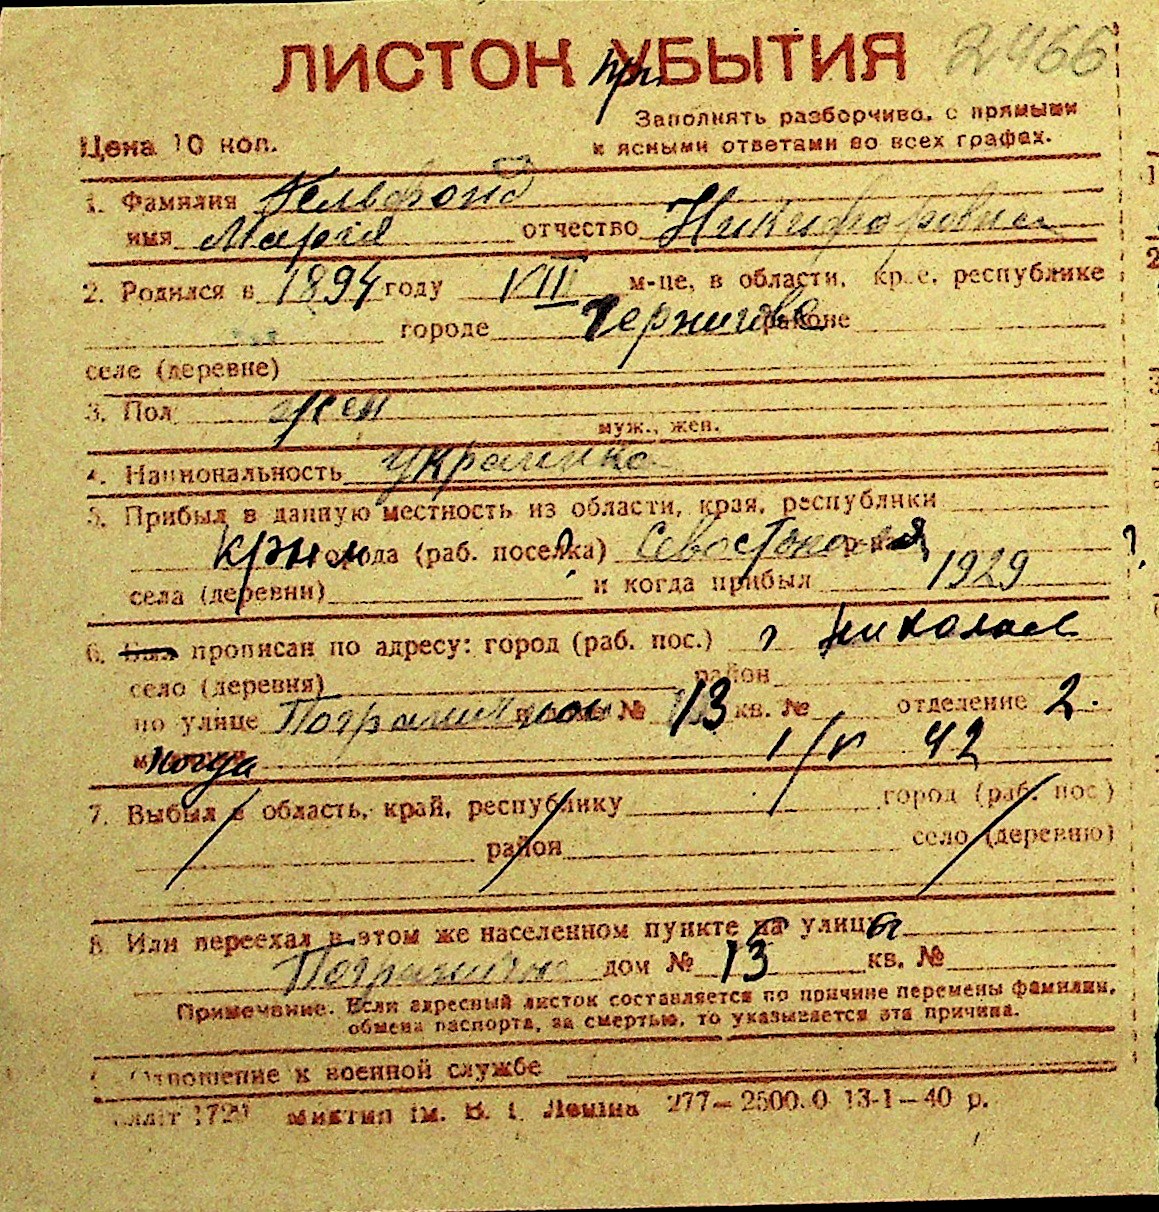 ЛИСТОК УБЫТИЯ 2466
При
Заполнять разборчиво, с прямыми
Цена 10 коп. и ясными ответами во всех графах.
1. Фамилия Гельфонд
имя Мария отчество Никифоровна
2. Родился в 1894 году VIII м-це, в области, кр. е, республике
городе Чернигове районе
селе (деревне)
3. Пол жен
муж., жен.
4. Национальность украинка
5. Прибыл в данную местность из области, края, республики
Крым города (раб. поселка) Севастополя
села (деревни) и когда прибыл 1929
6. Был прописан по адресу: город (раб. пос.) г Николаев
село (деревня) район
по улице Пограничной № 13 кв. № отделение 2.
когда 1/IV 42
7. Выбыл в область, край, республику город (раб. пос.)
район село (деревню)
8. Или переехал в этом же населенном пункте на улицы
Погранично дом № 13 кв. №
Примечание. Если адресный листок составляется по причине перемены фамилии,
обмена паспорта, за смертью, то указывается эта причина.
Отношение к военной службе
1729 им. В. І. Леніна 277—2500.0 13-1—40 р.